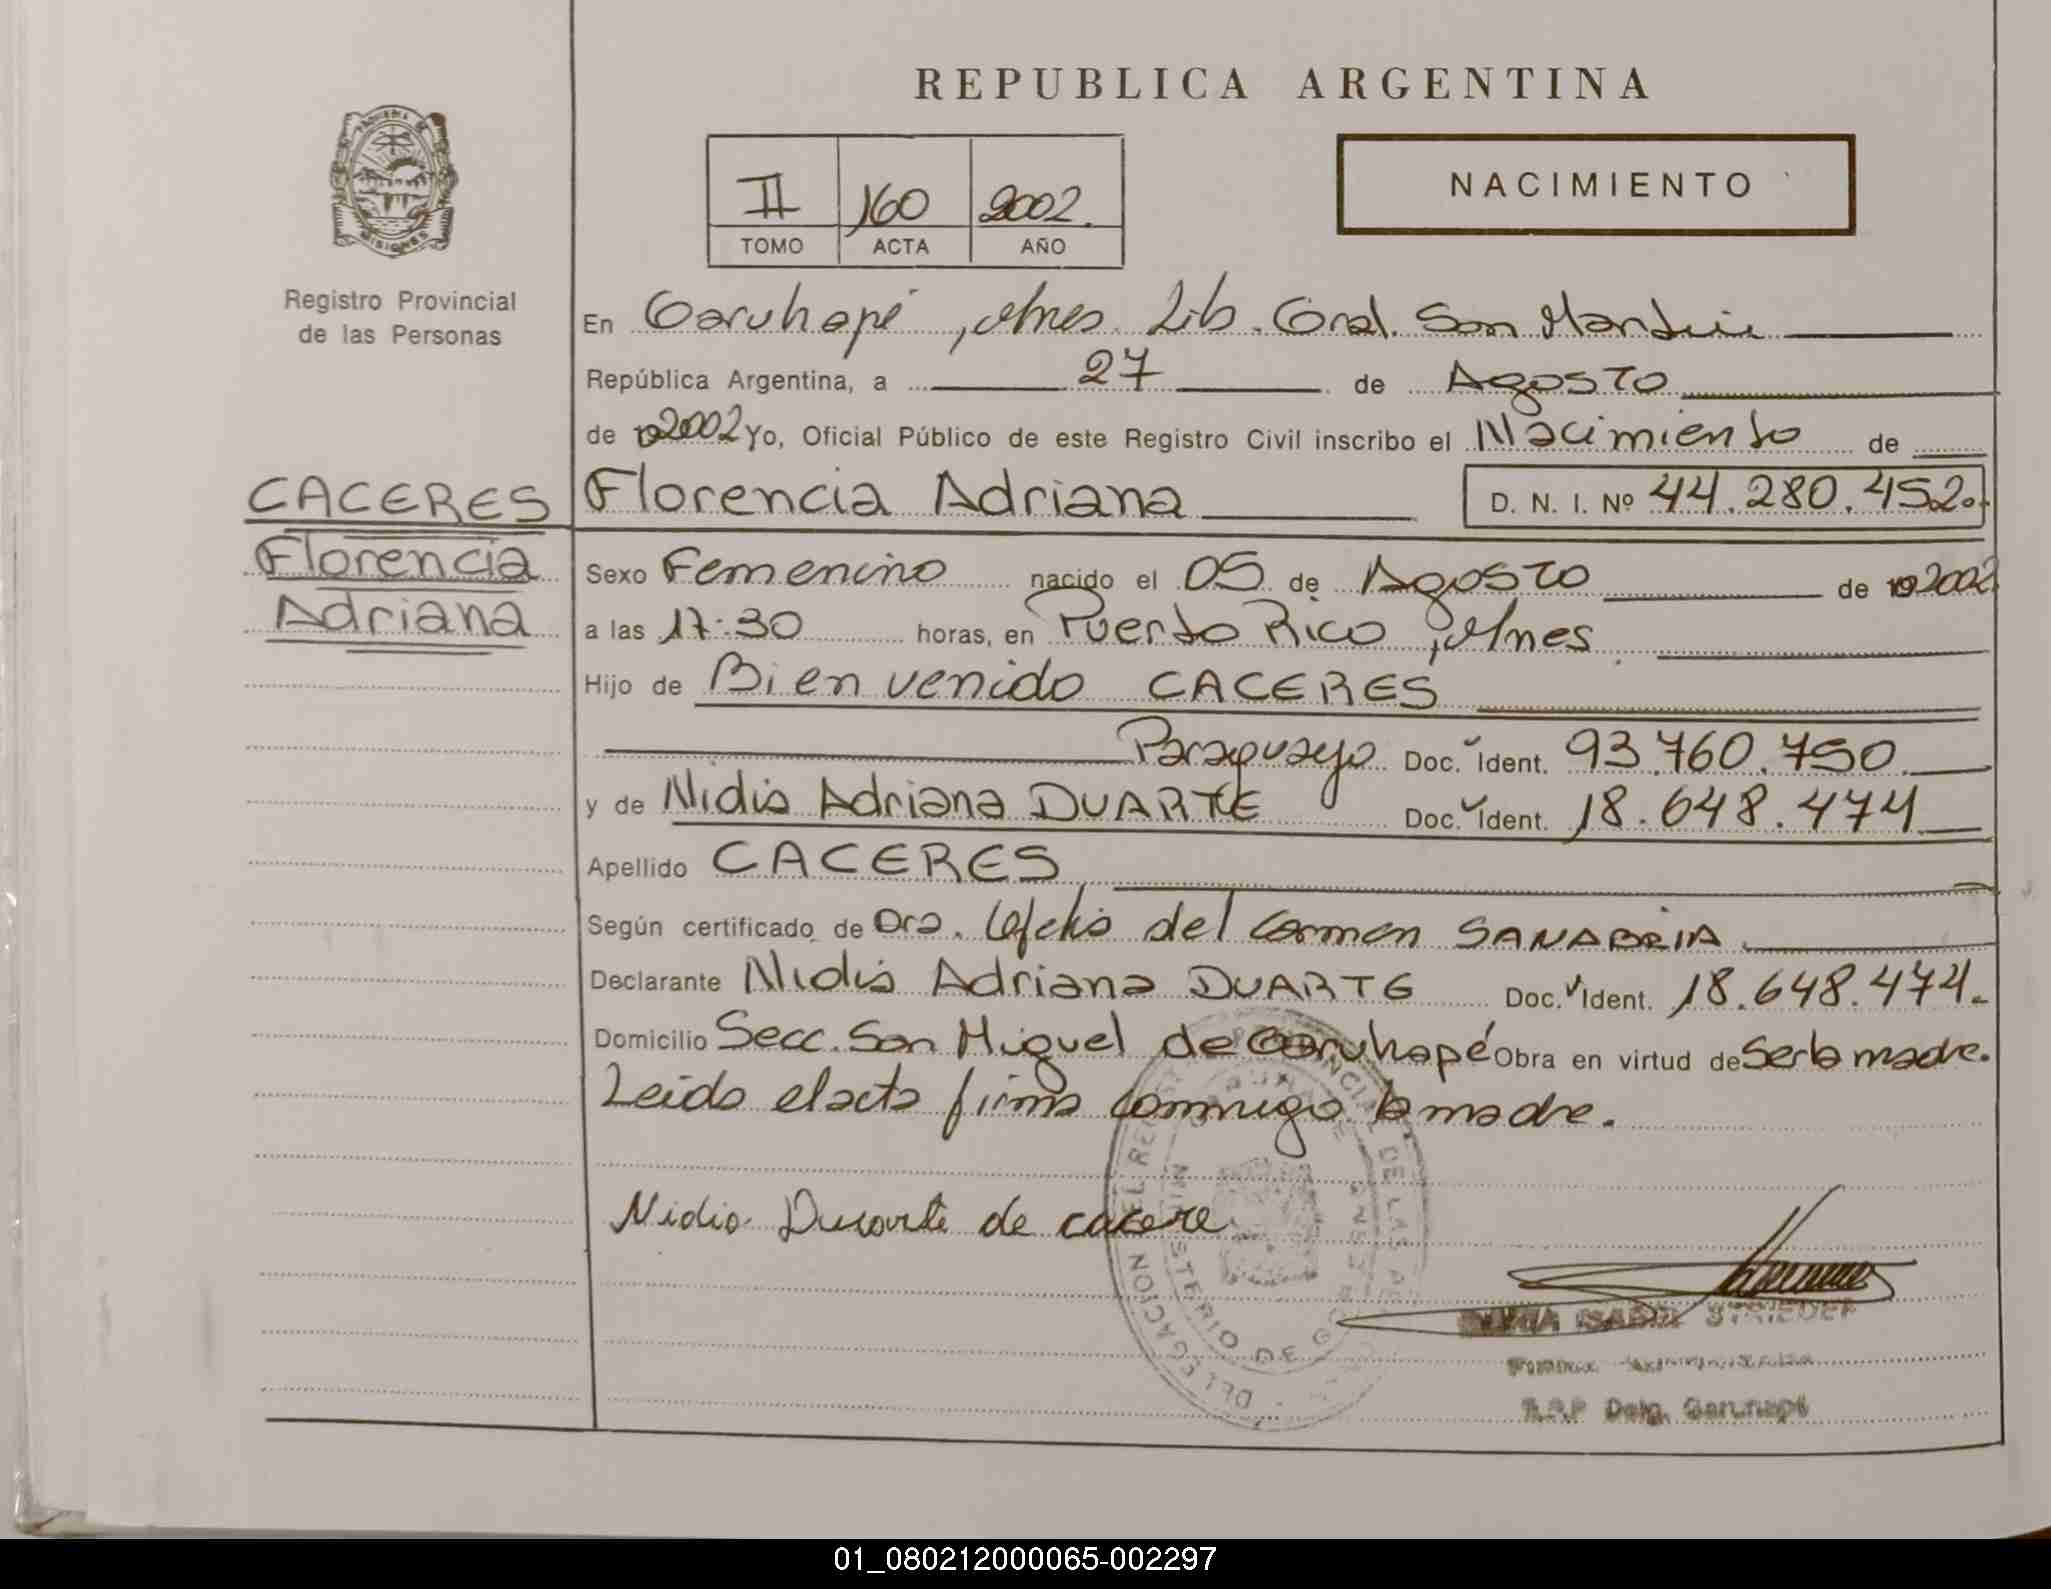 REPUBLICA ARGENTINA
II 160 2002.
TOMO ACTA AÑO
NACIMIENTO
MISIONES
Registro Provincial
de las Personas
En Garuhapé, Mnes. Lib. Gral. San Martín
República Argentina, a 27 de Agosto
de 2002 Yo, Oficial Público de este Registro Civil inscribo el Nacimiento de
CACERES
Florencia
Adriana
Florencia Adriana D. N. I. Nº 44.280.452.
Sexo Femenino nacido el 05 de Agosto de 2002
a las 17:30 horas, en Puerto Rico, Mnes.
Hijo de Bienvenido CACERES
Paraguayo Doc. Ident. 93.760.750.
y de Nidia Adriana DUARTE Doc. Ident. 18.648.474.
Apellido CACERES
Según certificado de Dra. Ofelia del Carmen SANABRIA.
Declarante Nidia Adriana DUARTE Doc. Ident. 18.648.474.
Domicilio Secc. San Miguel de Garuhapé Obra en virtud de Ser la madre.
Leida el acta firma conmigo la madre.
Nidia Duarte de cacere
DELEGACION DEL REGISTRO PROVINCIAL DE LAS
MINISTERIO DE GO
ISABEL STRIEDER
R.P.P Delg. Garuhapé
01_080212000065-002297